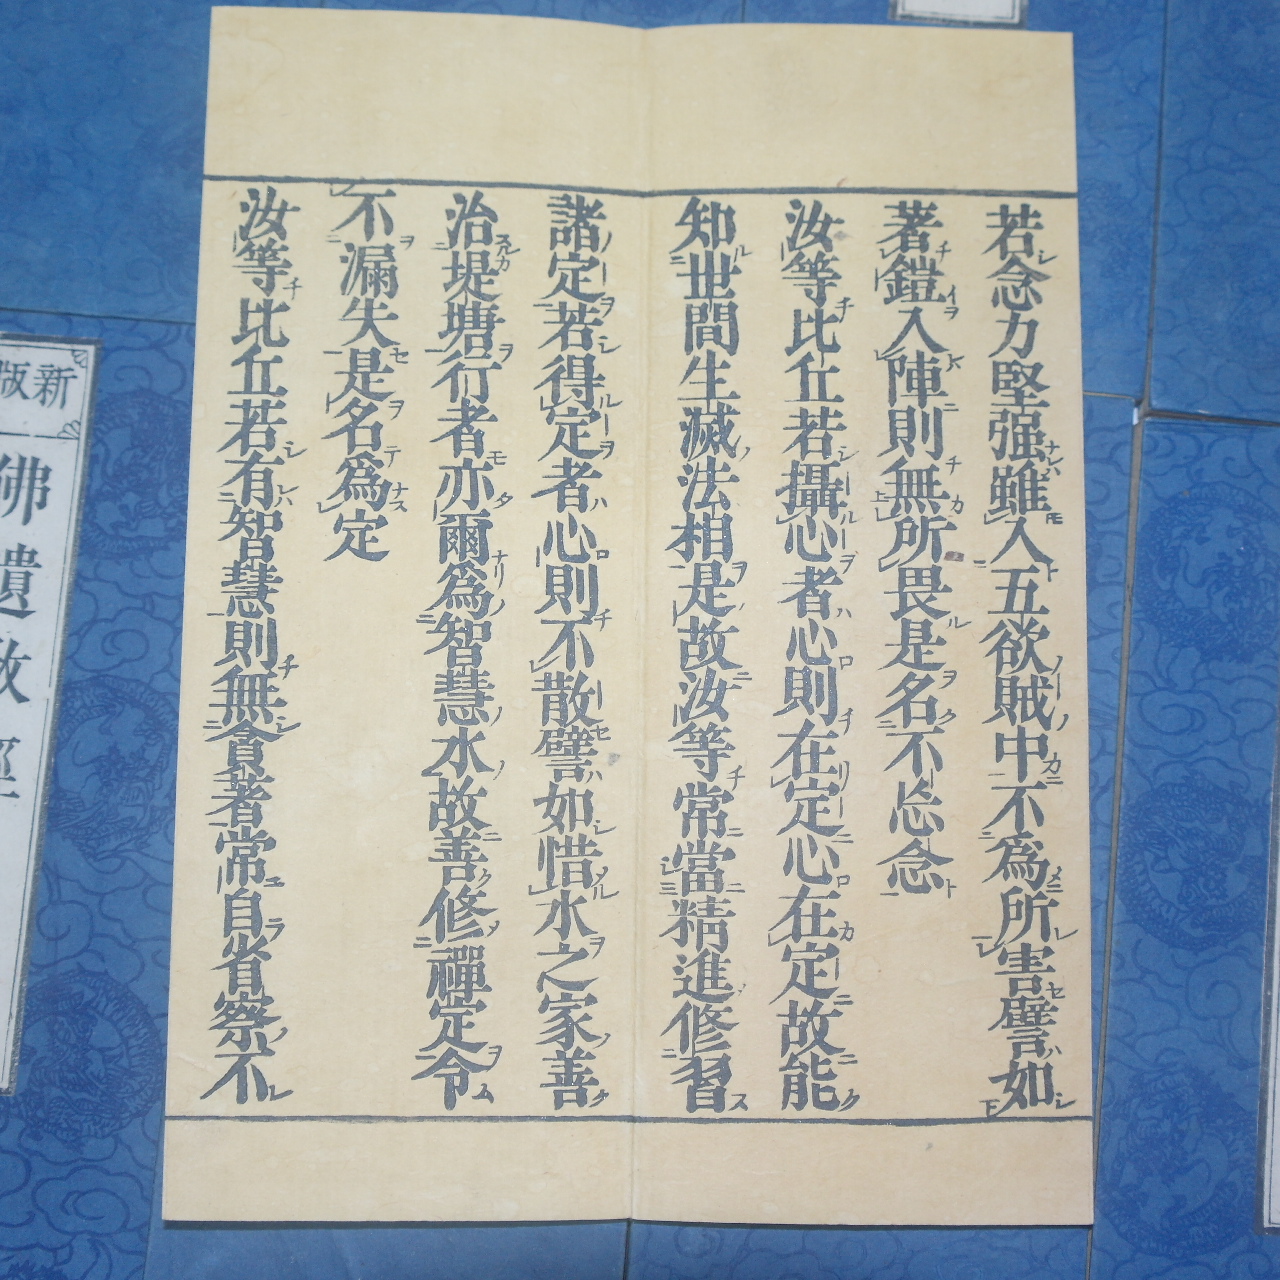 若念力堅强雖入五欲賊中不為所害譬如
著鎧入陣則無所畏是名不忘念
汝等比丘若攝心者心則在定心在定故能
知世間生滅法相是故汝等常當精進修習
諸定若得定者心則不散譬如惜水之家善
治堤塘行者亦爾為智慧水故善修禪定令
不漏失是名為定
汝等比丘若有智慧則無貪著常自省察不
新版
佛遺教經